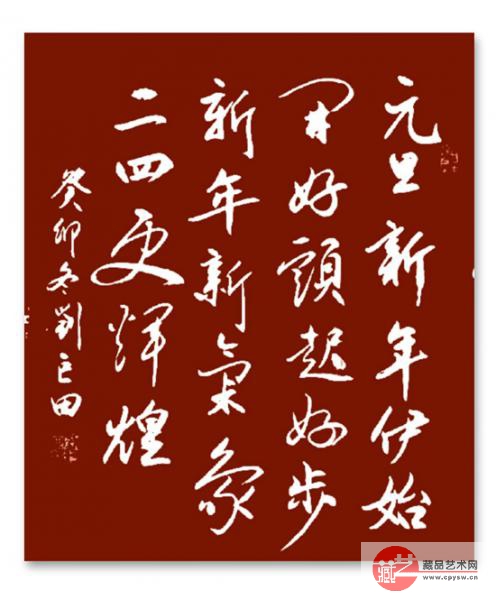 元旦新年伊始
開好頭起好步
新年新氣象
二四更輝煌
癸卯冬劉巨田
藏品艺术网
www.cpysw.cn